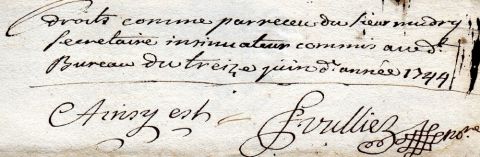 droits comme par receu du sieur mudry
secretaire insinuateur commis au d.t
Bureau du treize juin d.e année 1744
Ainsy est Vulliez no.re